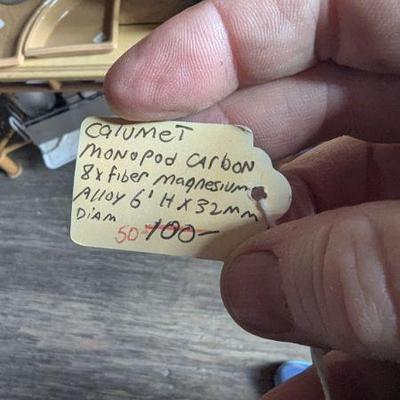 CalumeT
MONOPOD CARBON
8x FIBER MAGNESIUM
Alloy 6' H X 32mm
DIAM
50 100-